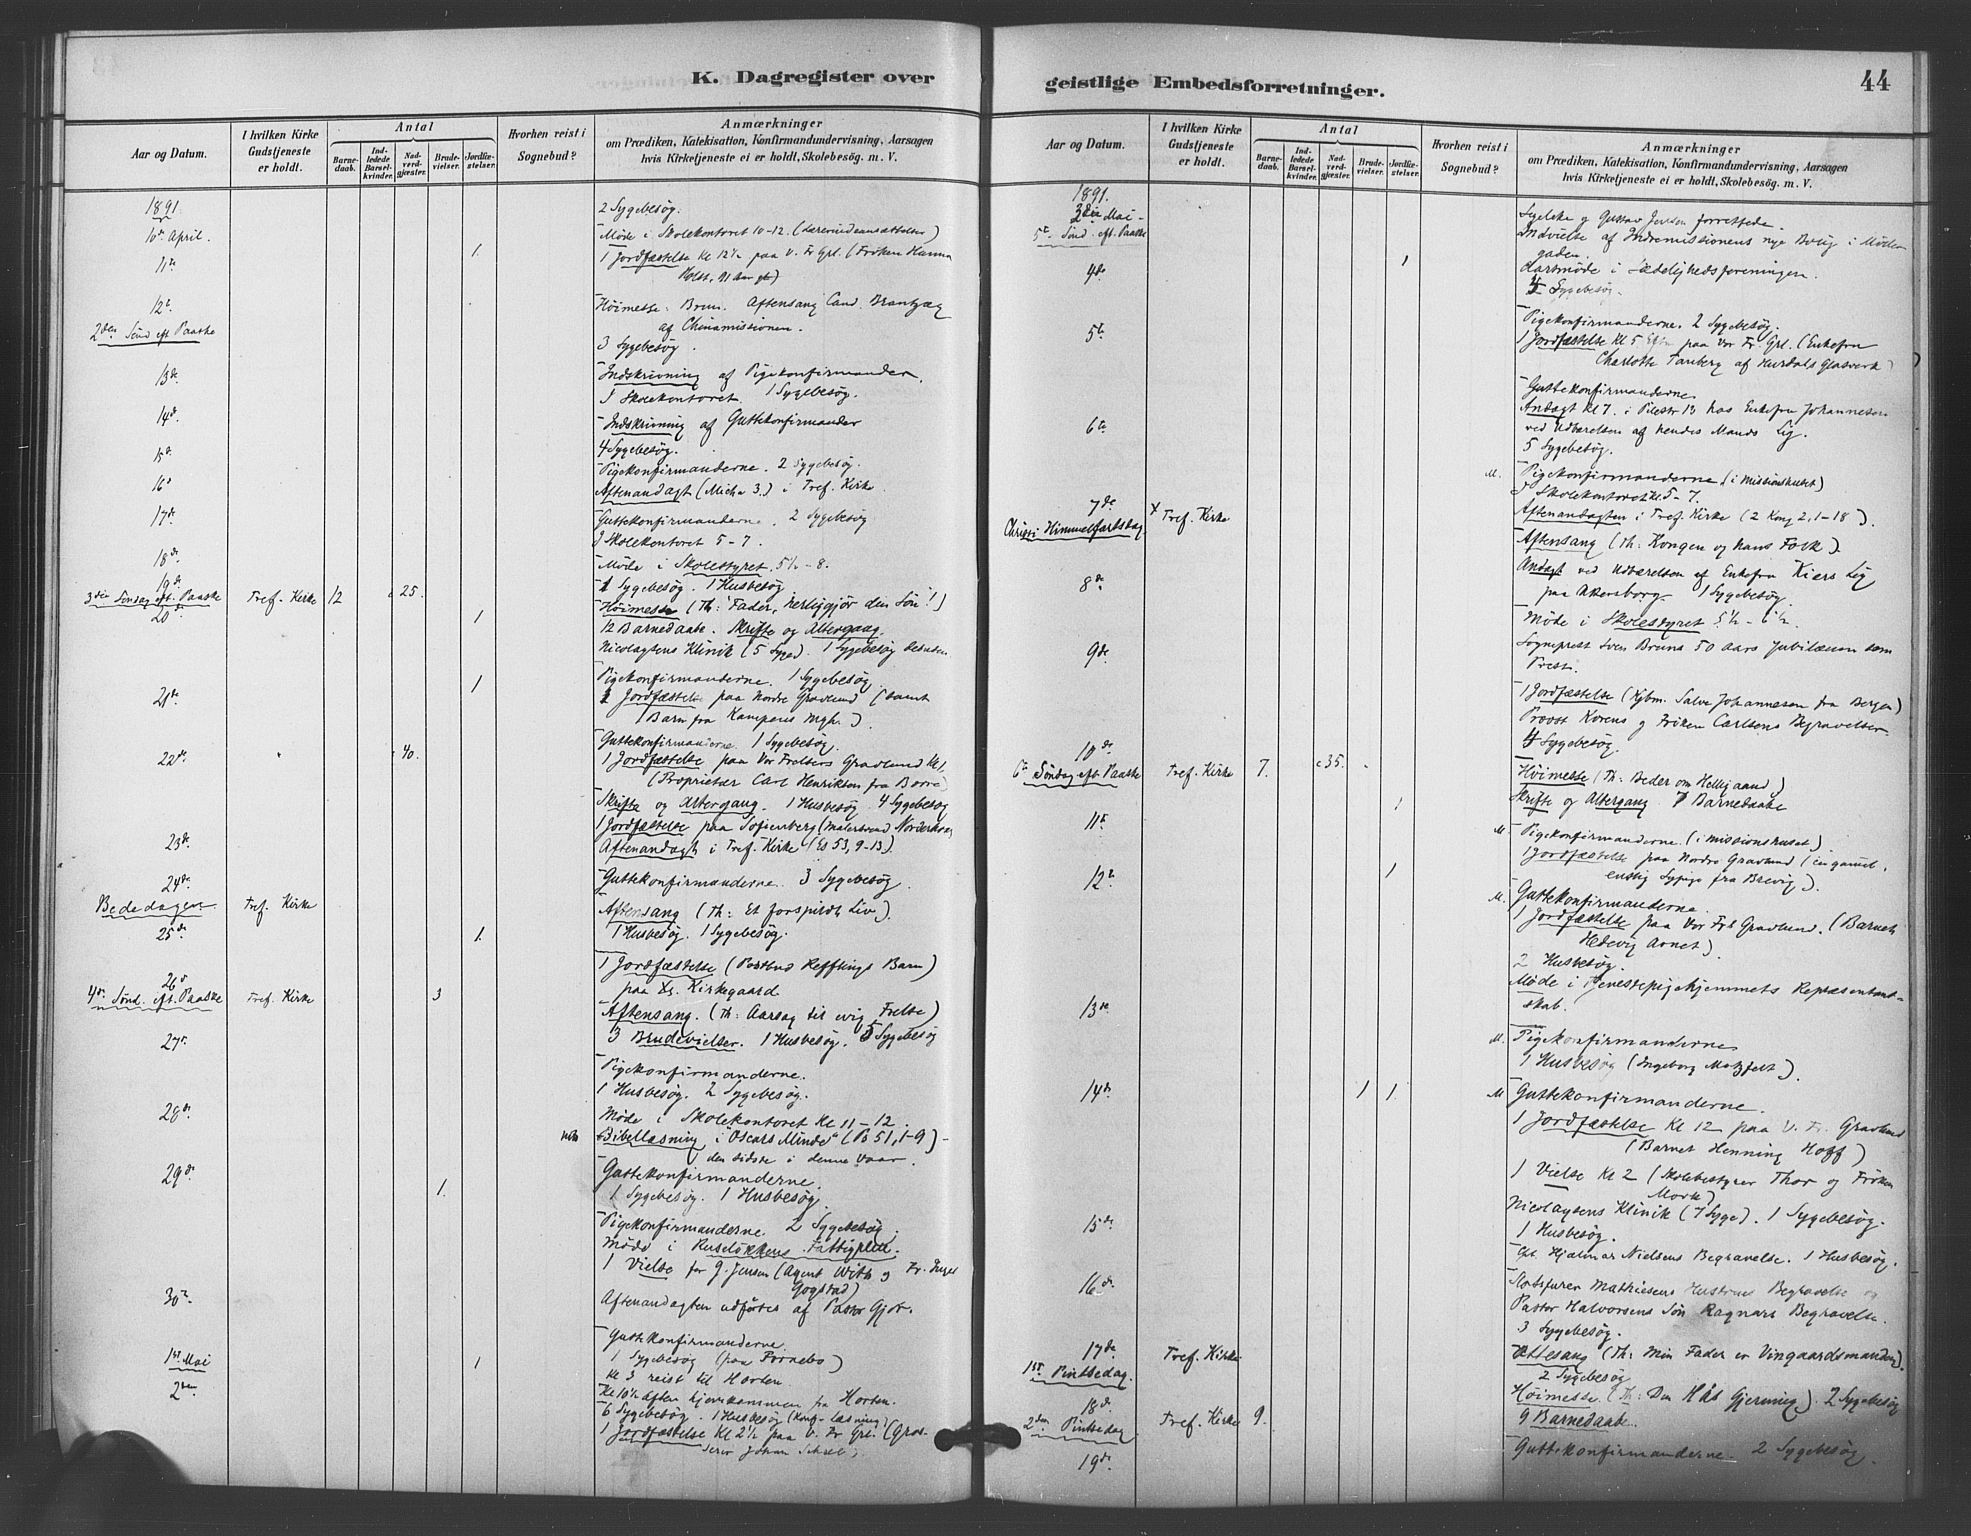 K. Dagregister over
Aar og Datum.
I hvilken Kirke Gudstjeneste er holdt.
Antal
Barne-daab.
Ind-ledede Barsel-kvinder.
Nad-verd-gjæster.
Brude-vielser.
Jordfæ-stelser.
Hvorhen reist i Sognebud?
Anmærkninger
om Prædiken, Katekisation, Konfirmandundervisning, Aarsagen
hvis Kirketjeneste ei er holdt, Skolebesøg. m. V.
1891.
2 Sygebesøg.
10de April.
Møde i Skolekontoret 10-12.
1.
1 Jordfæstelse Kl 12½ paa V. Fr Grl. (Frøken Hanna
11te
Holst,
12te
Høimesse: Brun. Aftensang Cand. Brantzæg
2den Sønd eft Paaske
af Chinamissionen.
3 Sygebesøg.
13de
Indskrivning af Pigekonfirmander.
I Skolekontoret. 1 Sygebesøg.
14de
Indskrivning af Guttekonfirmander
4 Sygebesøg.
15de
Pigekonfirmanderne. 2 Sygebesøg.
16de
Aftenandagt (Micha 3.) i Tref. Kirke
17de
Guttekonfirmanderne. 2 Sygebesøg
I Skolekontoret 5-7.
18de
Møde i Skolestyret. 5½-8.
1 Sygebesøg. 1 Husbesøg
19de
3die Søndag eft. Paaske Tref. Kirke 12 25.
Høimesse (Th: Fader, herliggjør den Søn!)
20de 1
12 Barnedaabe. Skrifte og Altergang.
Nicolaysens Klinik (5 Syge). 1 Sygebesøg desuden
Pigekonfirmanderne. 1 Sygebesøg
21de 1
1 Jordfæstelse paa Nordre Gravlund (samt
1 Barn fra Kampens Mgh.)
Guttekonfirmanderne. 1 Sygebesøg.
22de 40.
1 Jordfæstelse paa Vor Frelsers Gravlund Kl 1
(Proprietær Carl Henriksen fra Borre)
Skrifte og Altergang. 1 Husbesøg 4 Sygebesøg
1 Jordfæstelse paa Sofienberg
23de
Aftenandagt i Tref. Kirke (Es 53, 9-13).
24de
Guttekonfirmanderne. 3 Sygebesøg.
Bededagen Tref. Kirke
Aftensang (Th: Et forspildt Liv).
25de 1.
1 Husbesøg. 1 Sygebesøg.
1 Jordfæstelse (Postbud Refflings Barn)
26de
paa Kirkegaard
4de Sønd. eft. Paaske Tref. Kirke 3
Aftensang. (Th: Aarsag til evig Frelse)
3 Brudevielser. 1 Husbesøg. 5 Sygebesøg
27de
Pigekonfirmanderne.
1 Husbesøg. 2 Sygebesøg.
28de
Møde i Skolekontoret Kl 11-12.
Bibellæsning i "Oscars Minde" (Ps 51, 1-9)
den sidste i denne Vaar.
29de
Guttekonfirmanderne.
1.
1 Sygebesøg. 1 Husbesøg.
Pigekonfirmanderne 2 Sygebesøg.
Møde i Ruseløkkens Fattigpleie.
1 Vielse for G. Jensen (Agent With og Fr. Inger
Gogstad)
30te
Aftenandagten udførtes af Pastor Gjør.
Guttekonfirmanderne
1ste Mai 1
1 Sygebesøg (paa Fornebo)
Kl 3 reist til Horten.
2den
Kl 10½ Aften hjemkommen fra Horten.
6 Sygebesøg. 1 Husbesøg
1 Jordfæstelse Kl 2½ paa V. Fr Grl. (Gros-
serer Johan
geistlige Embedsforretninger.
44
Aar og Datum.
I hvilken Kirke Gudstjeneste er holdt.
Antal
Barne-daab.
Ind-ledede Barsel-kvinder.
Nad-verd-gjæster.
Brude-vielser.
Jordfæ-stelser.
Hvorhen reist i Sognebud?
Anmærkninger
om Prædiken, Katekisation, Konfirmandundervisning, Aarsagen
hvis Kirketjeneste ei er holdt, Skolebesøg. m. V.
1891.
3die Mai
og Gustav Jensen forrettede.
5te Sønd. eft. Paaske
Indvielse af Indremissionens nye Bolig i Møller-
gaden.
4de 1
Aarsmøde i Sædelighedsforeningen.
Sygebesøg.
Pigekonfirmanderne. 2 Sygebesøg.
5te
1 Jordfæstelse Kl 5 Eftm paa Vor Fr. Grl. (Enkefru
Charlotte Tanberg af Hurdals Glasverk)
Guttekonfirmanderne
Andagt Kl 7. i Pilestr 13 hos Enkefru Johannesen
6te
ved Udbærelsen af hendes Mands Lig.
5 Sygebesøg.
M. Pigekonfirmanderne (i Missionshuset)
I Skolekontoret Kl. 5-7.
7de Tref. Kirke
Aftenandagten i Tref. Kirke (2 Kong 2, 1-18).
Christi Himmelfartsdag
Aftensang (Th: Kongen og hans Folk).
8de
Andagt ved Udbærelsen af Enkefru Kiærs Lig
paa Akersborg. 1 Sygebesøg.
Møde i Skolestyret
9de
Sogneprest Sven Bruns 50 Aars Jubilæum som
Prest.
1 Jordfæstelse (Kjbm. Salve Johannesen fra Bergen)
Provst Korens og Frøken Carlsens Begravelser.
4 Sygebesøg.
10de
6te Søndag eft. Paaske Tref. Kirke 7. c 35.
Høimesse (Th: Beder om Hellig aand)
1
Skrifte og Altergang. 7 Barnedaabe
11te
M. Pigekonfirmanderne (i Missionshuset).
1 Jordfæstelse paa Nordre Gravlund (en gammel,
12te 1
enslig Sypige fra Brevig).
M. Guttekonfirmanderne.
1 Jordfæstelse paa Vor Frs Gravlund. (Barnet
Hedevig Arnet)
2 Husbesøg.
13de
Møde i Tjenestepigehjemmets Repræsentant-
skab.
M. Pigekonfirmanderne
1 Husbesøg (Ingeborg Motzfelt).
14de 1 1.
M Guttekonfirmanderne.
1 Jordfæstelse Kl 12 paa V. Fr. Gravlund
(Barnet Henning Hoff)
1 Vielse Kl 2 (Skolebestyrer Thor og Frøken
Mork)
15de
Nicolaysens Klinik (7 Syge). 1 Sygebesøg.
1 Husbesøg.
Hjalmar Nielsens Begravelse. 1 Husbesøg.
16de
Mathiesens Hustrues Begravelse og
Pastor Halvorsens Søn Ragnars Begravelse.
3 Sygebesøg.
17de Tref. Kirke
Ottesang (Th: Min Fader er Vingaardsmanden).
1ste Pintsedag.
2 Sygebesøg
18de
Høimesse (Th: Den Hås Gjerning). 2 Sygebesøg
2den Pintsedag Tref. Kirke 9.
9 Barnedaabe.
19de
Guttekonfirmanderne. 2 Sygebesøg.